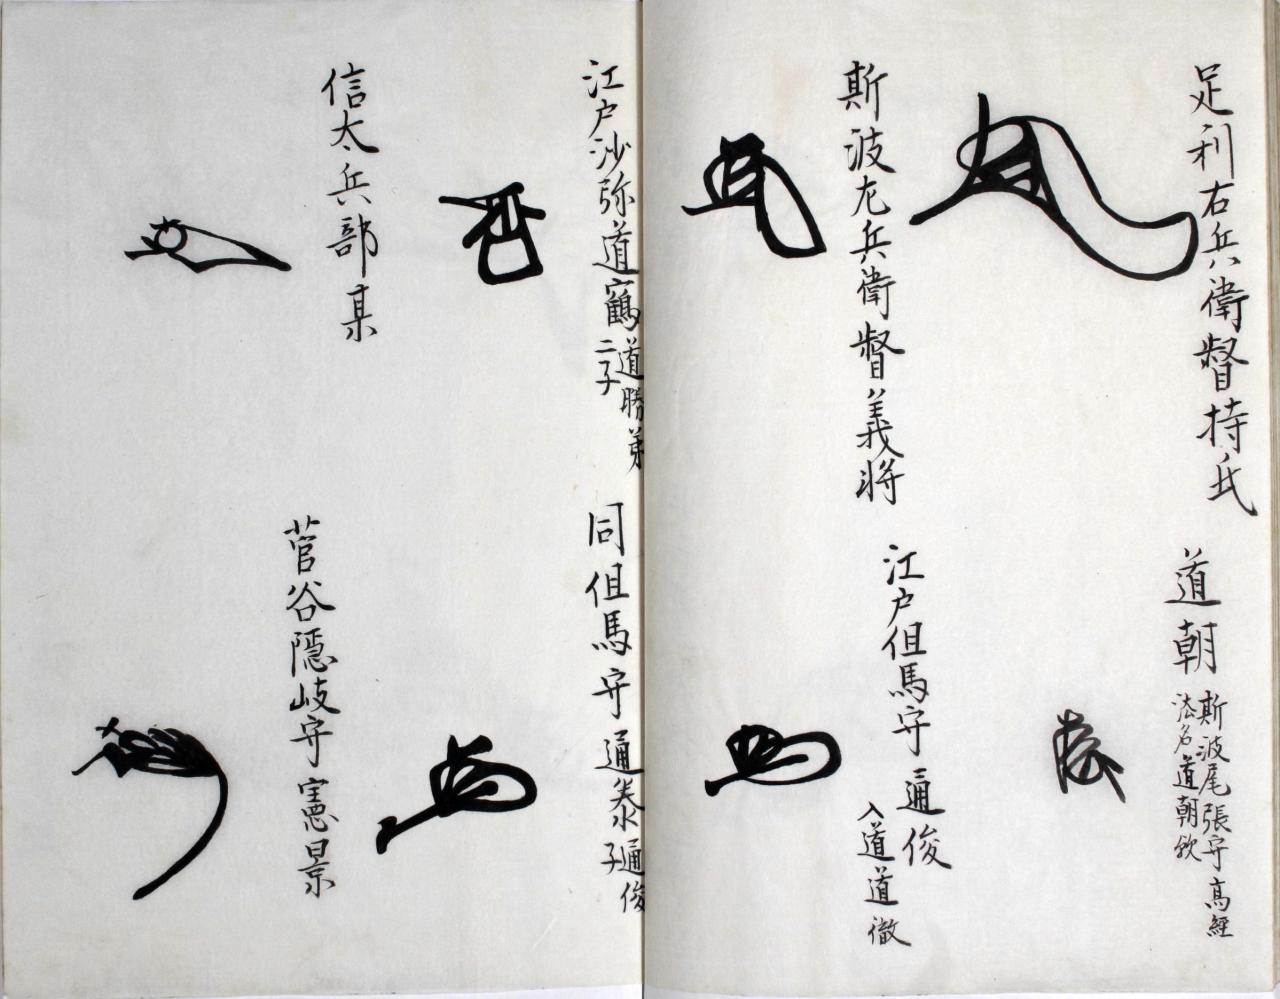 足利右兵衛督持氏
道朝
斯波尾張守高経
法名道朝欤
斯波左兵衛督義将
江戸但馬守通俊
入道道徹
江戸沙弥道鶴
道勝弟
二子
同但馬守通泰
通俊
子
信太兵部某
菅谷隠岐守憲景